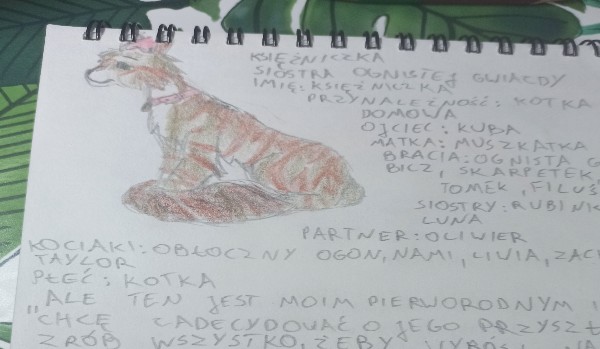 KSIĘŻNICZKA
SIOSTRA OGNISTEJ GWIAZDY
IMIĘ: KSIĘŻNICZKA
PRZYNALEŻNOŚĆ: KOTKA
DOMOWA
OJCIEC: KUBA
MATKA: MUSZKATKA
BRACIA: OGNISTA G
BICZ, SKARPETEK,
TOMEK, FILUŚ
SIOSTRY: RUBINK
LUNA
PARTNER: OLIWIER
KOCIAKI: OBŁOCZNY OGON, NAMI, LIVIA, ZACH
TAYLOR
PŁEĆ: KOTKA
"ALE TEN JEST MOIM PIERWORODNYM I
"CHCĘ ZADECYDOWAĆ O JEGO PRZYSZŁ
ZRÓB WSZYSTKO, ŻEBY